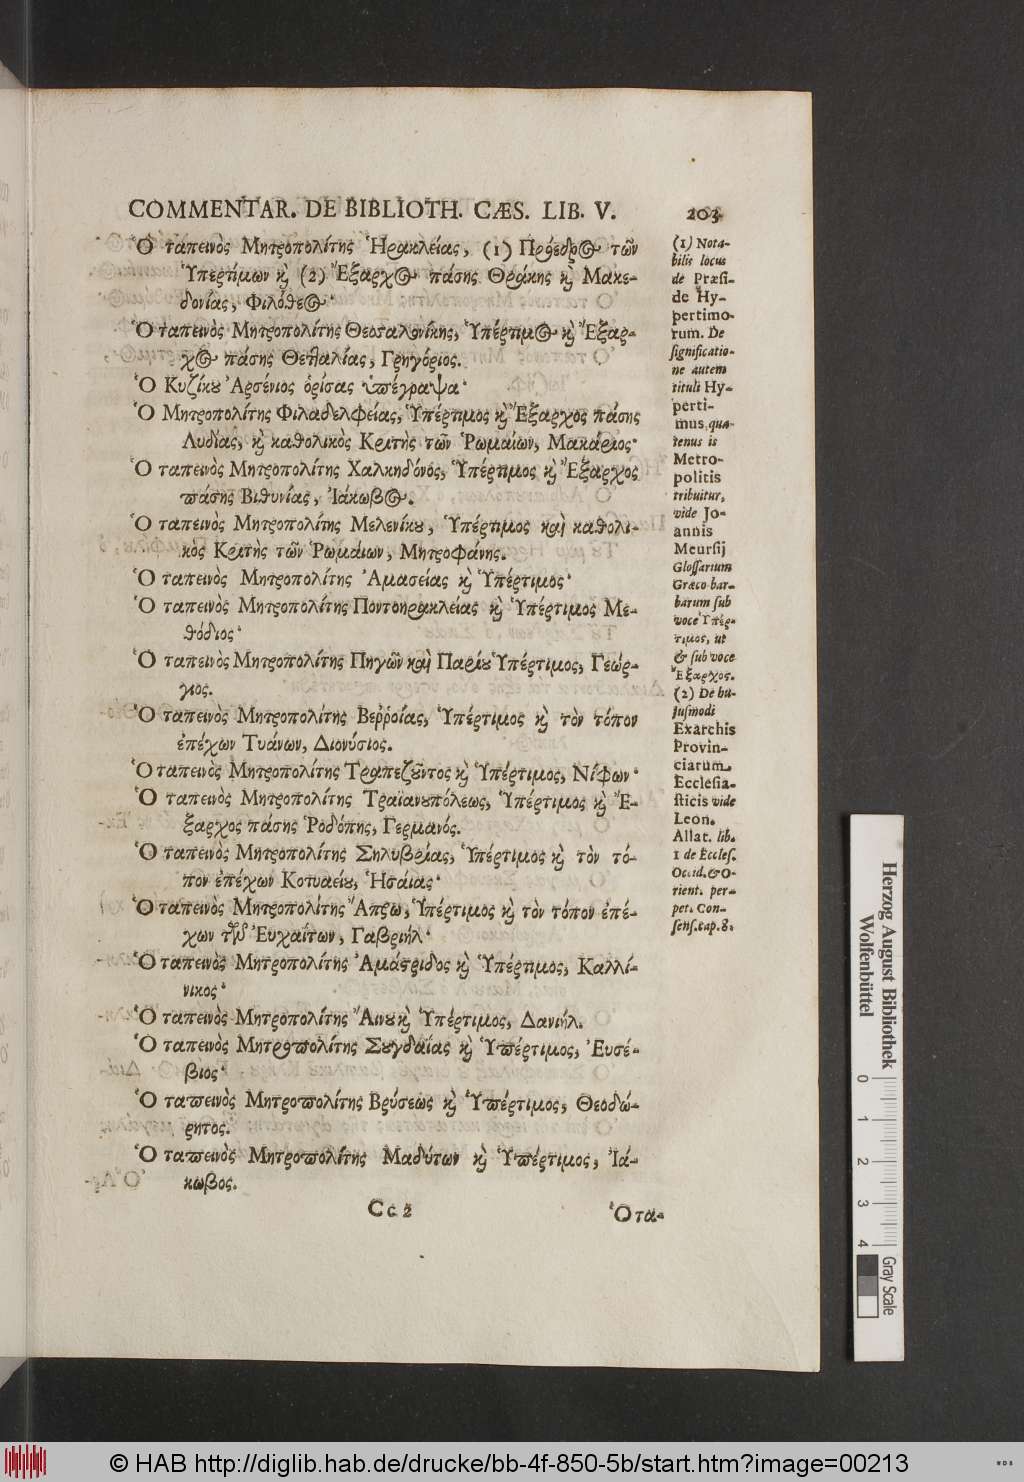 COMMENTAR. DE BIBLIOTH. CÆS. LIB. V. 203
Ὁ ταπεινὸς Μητροπολίτης Ἡρακλείας, (1) Πρόεδρος τῶν
Ὑπερτίμων κὶ (2) Ἔξαρχος πάσης Θράκης κὶ Μακε-
δονίας, Φιλόθεος·
Ὁ ταπεινὸς Μητροπολίτης Θεσσαλονίκης, Ὑπέρτιμος κὶ Ἔξαρ-
χος πάσης Θετταλίας, Γρηγόριος.
Ὁ Κυζίκου Ἀρσένιος ὁρίσας ὑπέγραψα·
Ὁ Μητροπολίτης Φιλαδελφείας, Ὑπέρτιμος κὶ Ἔξαρχος πάσης
Λυδίας, κὶ καθολικὸς Κριτὴς τῶν Ῥωμαίων, Μακάριος·
Ὁ ταπεινὸς Μητροπολίτης Χαλκηδόνος, Ὑπέρτιμος κὶ Ἔξαρχος
πάσης Βιθυνίας, Ἰάκωβος.
Ὁ ταπεινὸς Μητροπολίτης Μελενίκου, Ὑπέρτιμος καὶ καθολι-
κὸς Κριτὴς τῶν Ῥωμαίων, Μητροφάνης.
Ὁ ταπεινὸς Μητροπολίτης Ἀμασείας κὶ Ὑπέρτιμος·
Ὁ ταπεινὸς Μητροπολίτης Ποντοηρακλείας κὶ Ὑπέρτιμος Με-
θόδιος·
Ὁ ταπεινὸς Μητροπολίτης Πηγῶν καὶ Παρίου Ὑπέρτιμος, Γεώρ-
γιος.
Ὁ ταπεινὸς Μητροπολίτης Βεῤῥοίας, Ὑπέρτιμος κὶ τὸν τόπον
ἐπέχων Τυάνων, Διονύσιος.
Ὁ ταπεινὸς Μητροπολίτης Τραπεζοῦντος κὶ Ὑπέρτιμος, Νίφων·
Ὁ ταπεινὸς Μητροπολίτης Τραϊανουπόλεως, Ὑπέρτιμος κὶ Ἔ-
ξαρχος πάσης Ῥοδόπης, Γερμανός.
Ὁ ταπεινὸς Μητροπολίτης Σηλυβρίας, Ὑπέρτιμος κὶ τὸν τό-
πον ἐπέχων Κοτυαείου, Ἡσαίας·
Ὁ ταπεινὸς Μητροπολίτης Ἄπρω, Ὑπέρτιμος κὶ τὸν τόπον ἐπέ-
χων τῶν Ἐυχαΐτων, Γαβριήλ·
Ὁ ταπεινὸς Μητροπολίτης Ἀμάστριδος κὶ Ὑπέρτιμος, Καλλί-
νικος·
Ὁ ταπεινὸς Μητροπολίτης Ἄινου κὶ Ὑπέρτιμος, Δανιήλ.
Ὁ ταπεινὸς Μητροπολίτης Σουγδαΐας κὶ Ὑπέρτιμος, Ἐυσέ-
βιος·
Ὁ ταπεινὸς Μητροπολίτης Βρύσεως κὶ Ὑπέρτιμος, Θεοδώ-
ρητος.
Ὁ ταπεινὸς Μητροπολίτης Μαδύτων κὶ Ὑπέρτιμος, Ἰά-
κωβος.
Cc 2 Ὁ τα-
(1) Nota-
bilis locus
de Præsi-
de Hy-
pertimo-
rum. De
significatio-
ne autem
tituli Hy-
perti-
mus, qua-
tenus is
Metro-
politis
tribuitur,
vide Jo-
annis
Meursij
Glossarium
Græco bar-
barum sub
voce Ὑπέρ-
τιμος, ut
& sub voce
Ἔξαρχος.
(2) De hu-
jusmodi
Exarchis
Provin-
ciarum
Ecclesia-
sticis vide
Leon.
Allat. lib.
1 de Eccles.
Occid. & O-
rient. per-
pet. Con-
sens. cap. 8.
Herzog August Bibliothek
Wolfenbüttel
0 1 2 3 4
Gray Scale
© HAB http://diglib.hab.de/drucke/bb-4f-850-5b/start.htm?image=00213
WDB